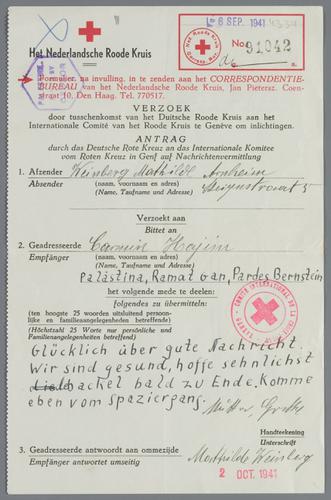 6 SEP. 1941
4334
Het Nederlandsche Roode Kruis
No 91042
Formulier, na invulling, in te zenden aan het CORRESPONDENTIE-
BUREAU van het Nederlandsche Roode Kruis, Jan Pietersz. Coen-
straat 10, Den Haag. Tel. 770517.
VERZOEK
door tusschenkomst van het Duitsche Roode Kruis aan het
Internationale Comité van het Roode Kruis te Genève om inlichtingen.
ANTRAG
durch das Deutsche Rote Kreuz an das Internationale Komitee
vom Roten Kreuz in Genf auf Nachrichtenvermittlung
1. Afzender Weinberg Mathilde Arnheim
Absender (naam, voornaam en adres)
(Name, Taufname und Adresse)
5
Verzoekt aan
Bittet an
2. Geadresseerde Carmin Hajim
Empfänger (naam, voornamen en adres)
(Name, Taufname und Adresse)
Palästina, Ramat Gan, Pardes Bernstein
het volgende mede te deelen:
folgendes zu übermitteln:
(ten hoogste 25 woorden uitsluitend persoon-
lijke en familieaangelegenheden betreffende)
(Höchstzahl 25 Worte nur persönliche und
Familienangelegenheiten betreffend)
Glücklich über gute Nachricht.
Wir sind gesund, hoffe sehnlichst
ackel bald zu Ende. Komme
eben vom Spaziergang.
Mutter, Grete
Handteekening
Unterschrift
3. Geadresseerde antwoordt aan ommezijde Mathilde Weinberg
Empfänger antwortet umseitig
2 OCT. 1941